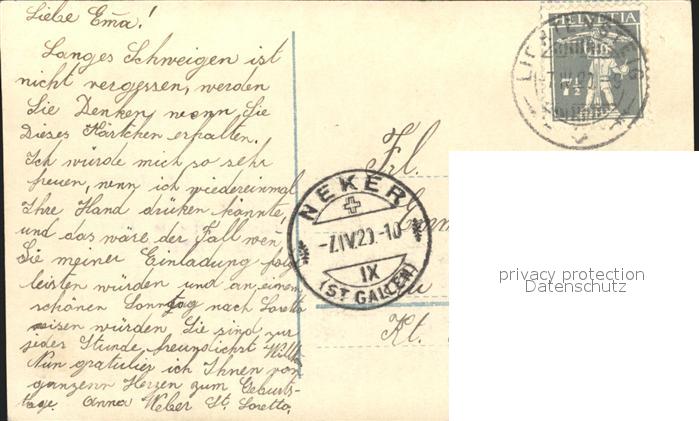 Liebe Em̄a!
Langes Schweigen ist
nicht vergessen, werden
Sie Denken, wenn Sie
Dieses Kärtchen erhalten.
Ich würde mich so sehr
freuen, wenn ich wiedereinmal
Ihre Hand drüken könnte,
und das wäre der Fall wen̄
Sie meiner Einladung folg
leisten würden und an einem
schönen Sonntag nach Loretto
reisen würden. Sie sind zur
jeder Stunde freundlichst Willk
Nun gratulier ich Ihnen von
ganzenn Herzen zum Geburts-
tage. Anna Weber St. Loretto.
HELVETIA
7½
LICHTENSTEIG
Frl.
NEKER
-7.IV.20.-10
IX
(ST. GALLEN)
Kt.
privacy protection
Datenschutz